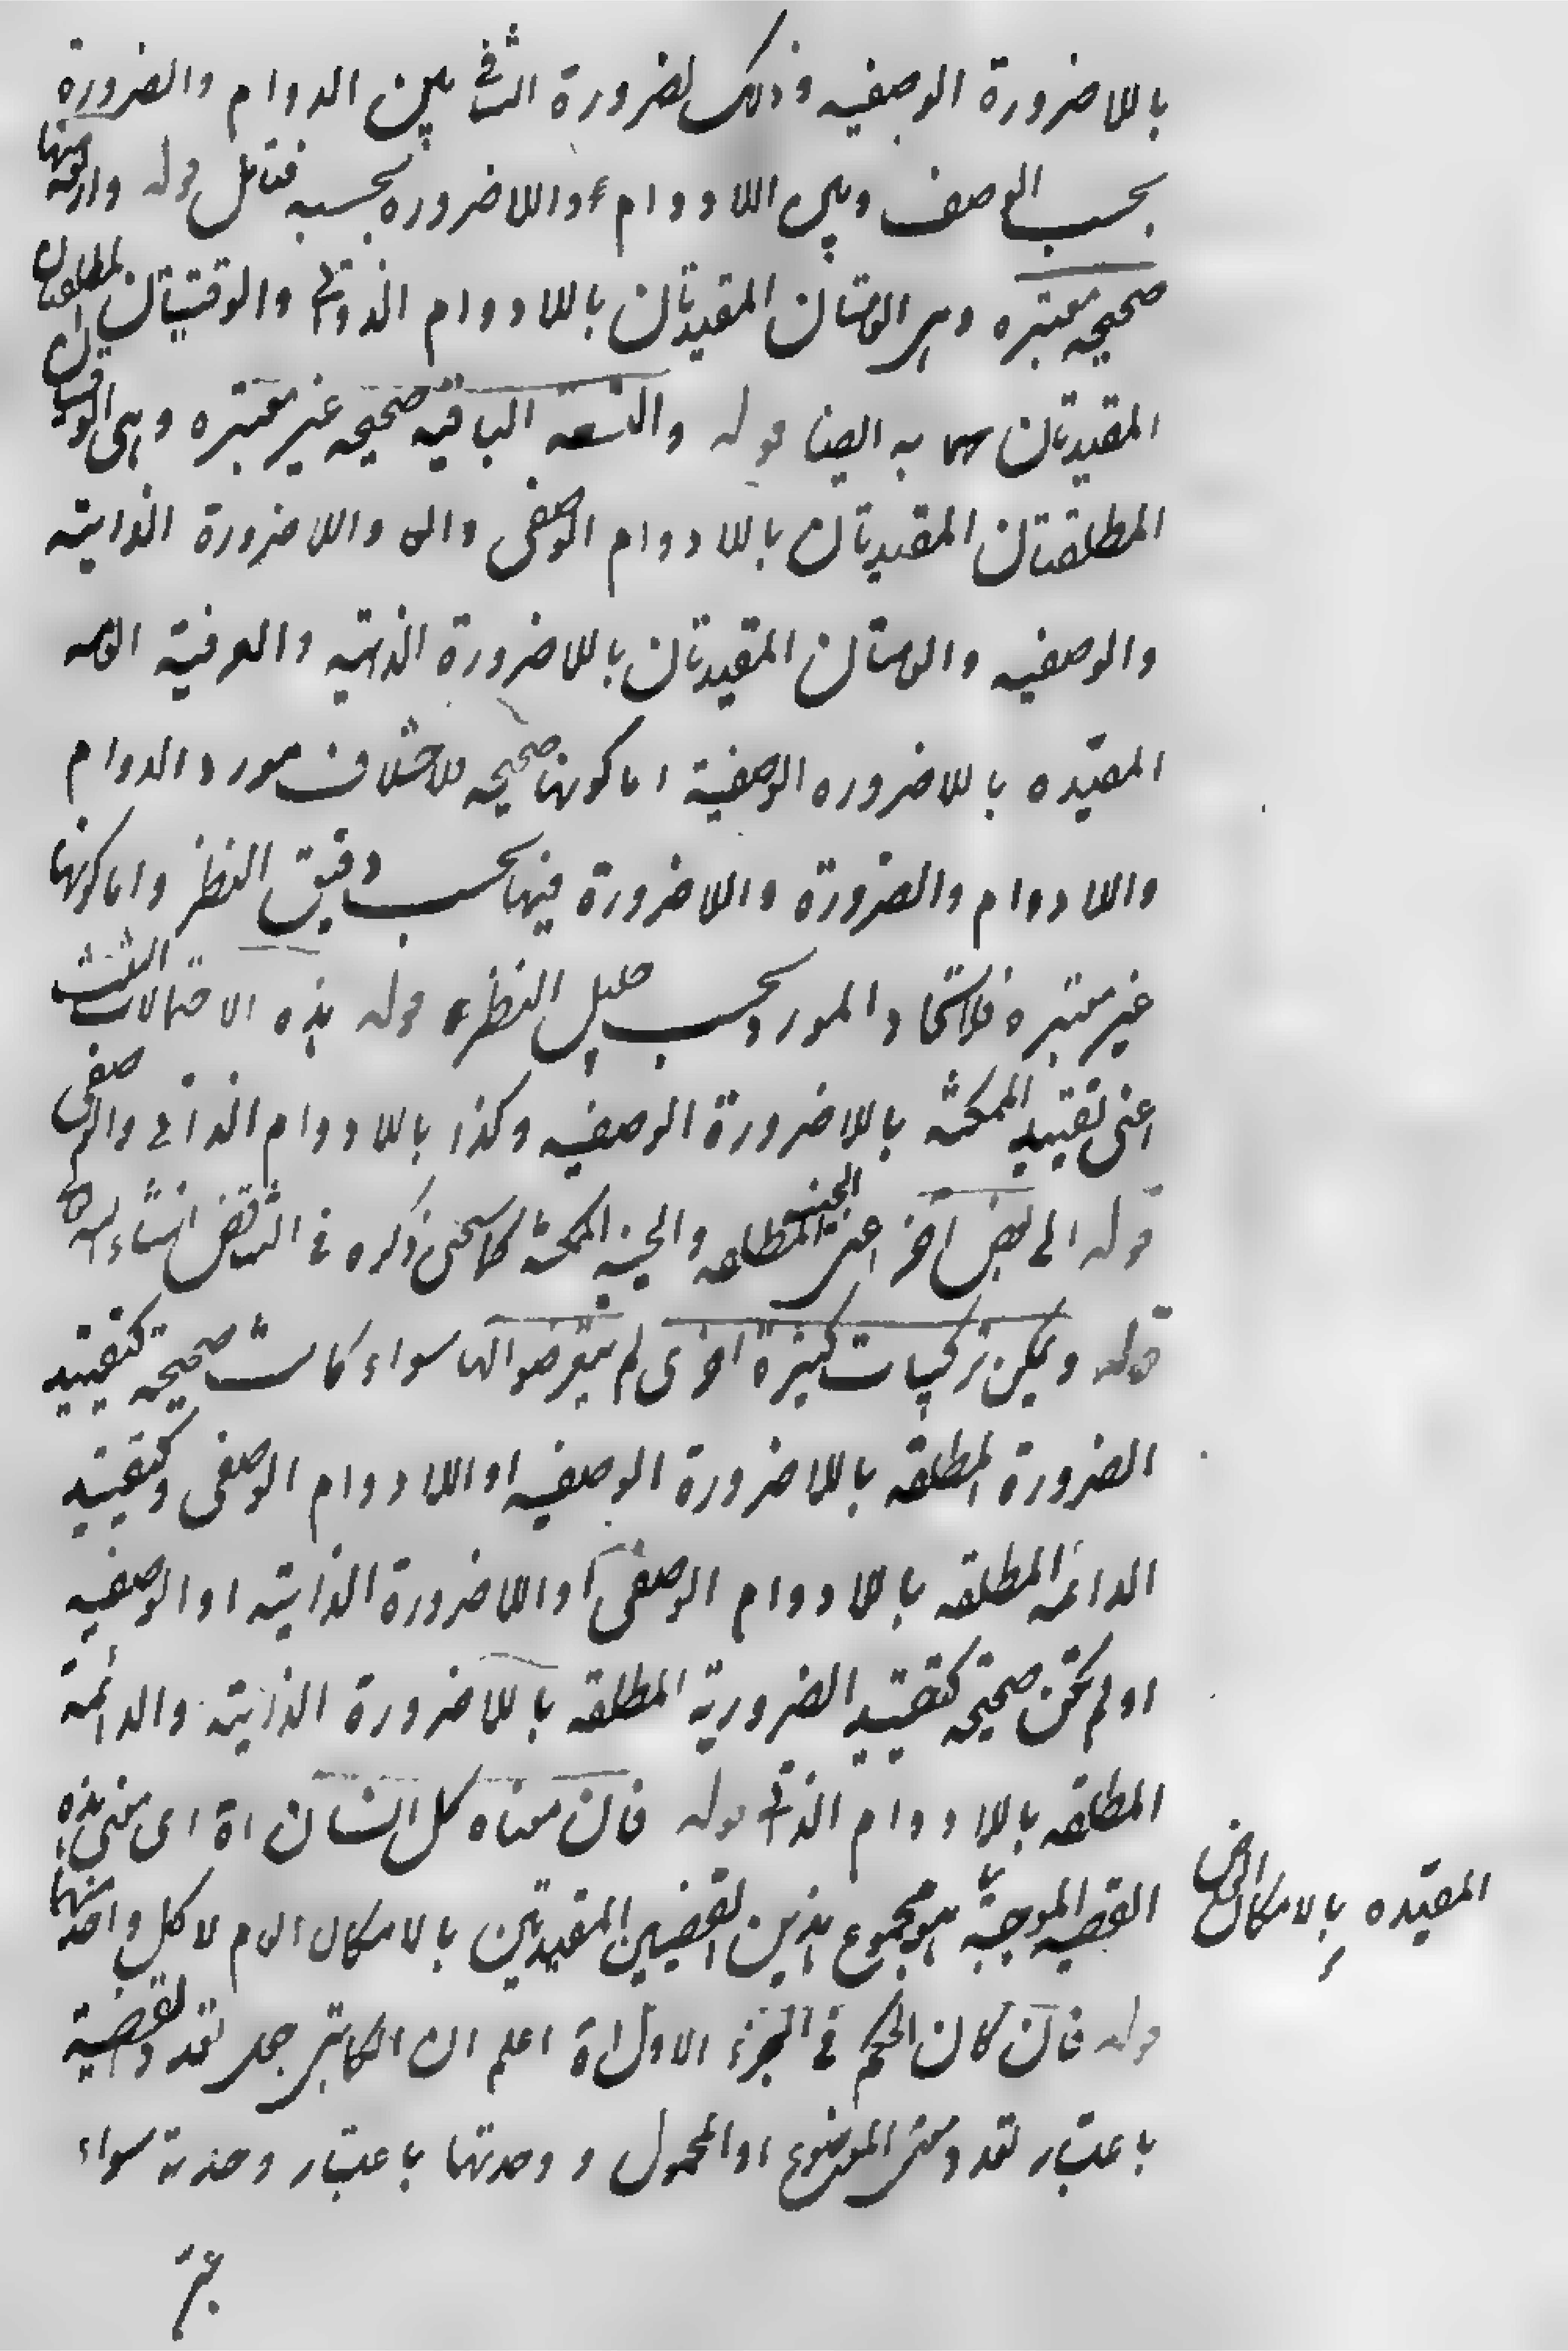 باللاضرورة الوصفيه وذلك لضرورة التنافى بين الدوام والضرورة
بحسب الوصف وبين اللادوام واللاضروره بحسبه فتامل قوله واربعة منها
صحيحه معتبره وهى العامتان المقيدتان باللادوام الذاتى والوقتيتان المطلقتان
المقيدتان به ايضا قوله والتسعه الباقيه صحيحه غير معتبره وهى الوقتيتان
المطلقتان المقيدتان باللادوام الوصفى واللاضرورة الذاتيه
والوصفيه والعامتان المقيدتان باللاضرورة الذاتيه والعرفية العامه
المقيده باللاضروره الوصفية اما كونها صحيحه فلاختلاف مورد الدوام
واللادوام والضرورة واللاضرورة فيها بحسب دقيق النظر واما كونها
غير معتبره فلاتحاد المورد بحسب جليل النظر قوله هذه الاحتمالات الثلث
اعنى تقييد الممكنة باللاضرورة الوصفيه وكذا باللادوام الذاتى والوصفى
قوله الى بعض آخر اعنى الحينيه المطلقه والحينيه الممكنة كما سيجئ ذكره فى التناقض انشاء الله
قوله ويمكن تركيبات كثيرة اخرى لم يتعرضوا لها سواء كانت صحيحة كتقييد
الضرورة المطلقه باللاضرورة الوصفيه او اللادوام الوصفى وكتقييد
الدائمه المطلقه باللادوام الوصفى او اللاضرورة الذاتيه او الوصفيه
او لم تكن صحيحه كتقييد الضرورية المطلقه باللاضرورة الذاتية والدائمة
المطلقه باللادوام الذاتى قوله فان معناه كل انسان اه اى معنى هذه
القضيه الموجبة هو مجموع هذين القضيتين المقيدتين بالامكان العام لا كل واحد منهما
المقيده بالامكان الخاص
قوله فان كان الحكم فى الجزء الاول اه اعلم ان الكاتبى جعل تعدد القضية
باعتبار تعدد معنى الموضوع او المحمول و وحدتها باعتبار وحدته سواء